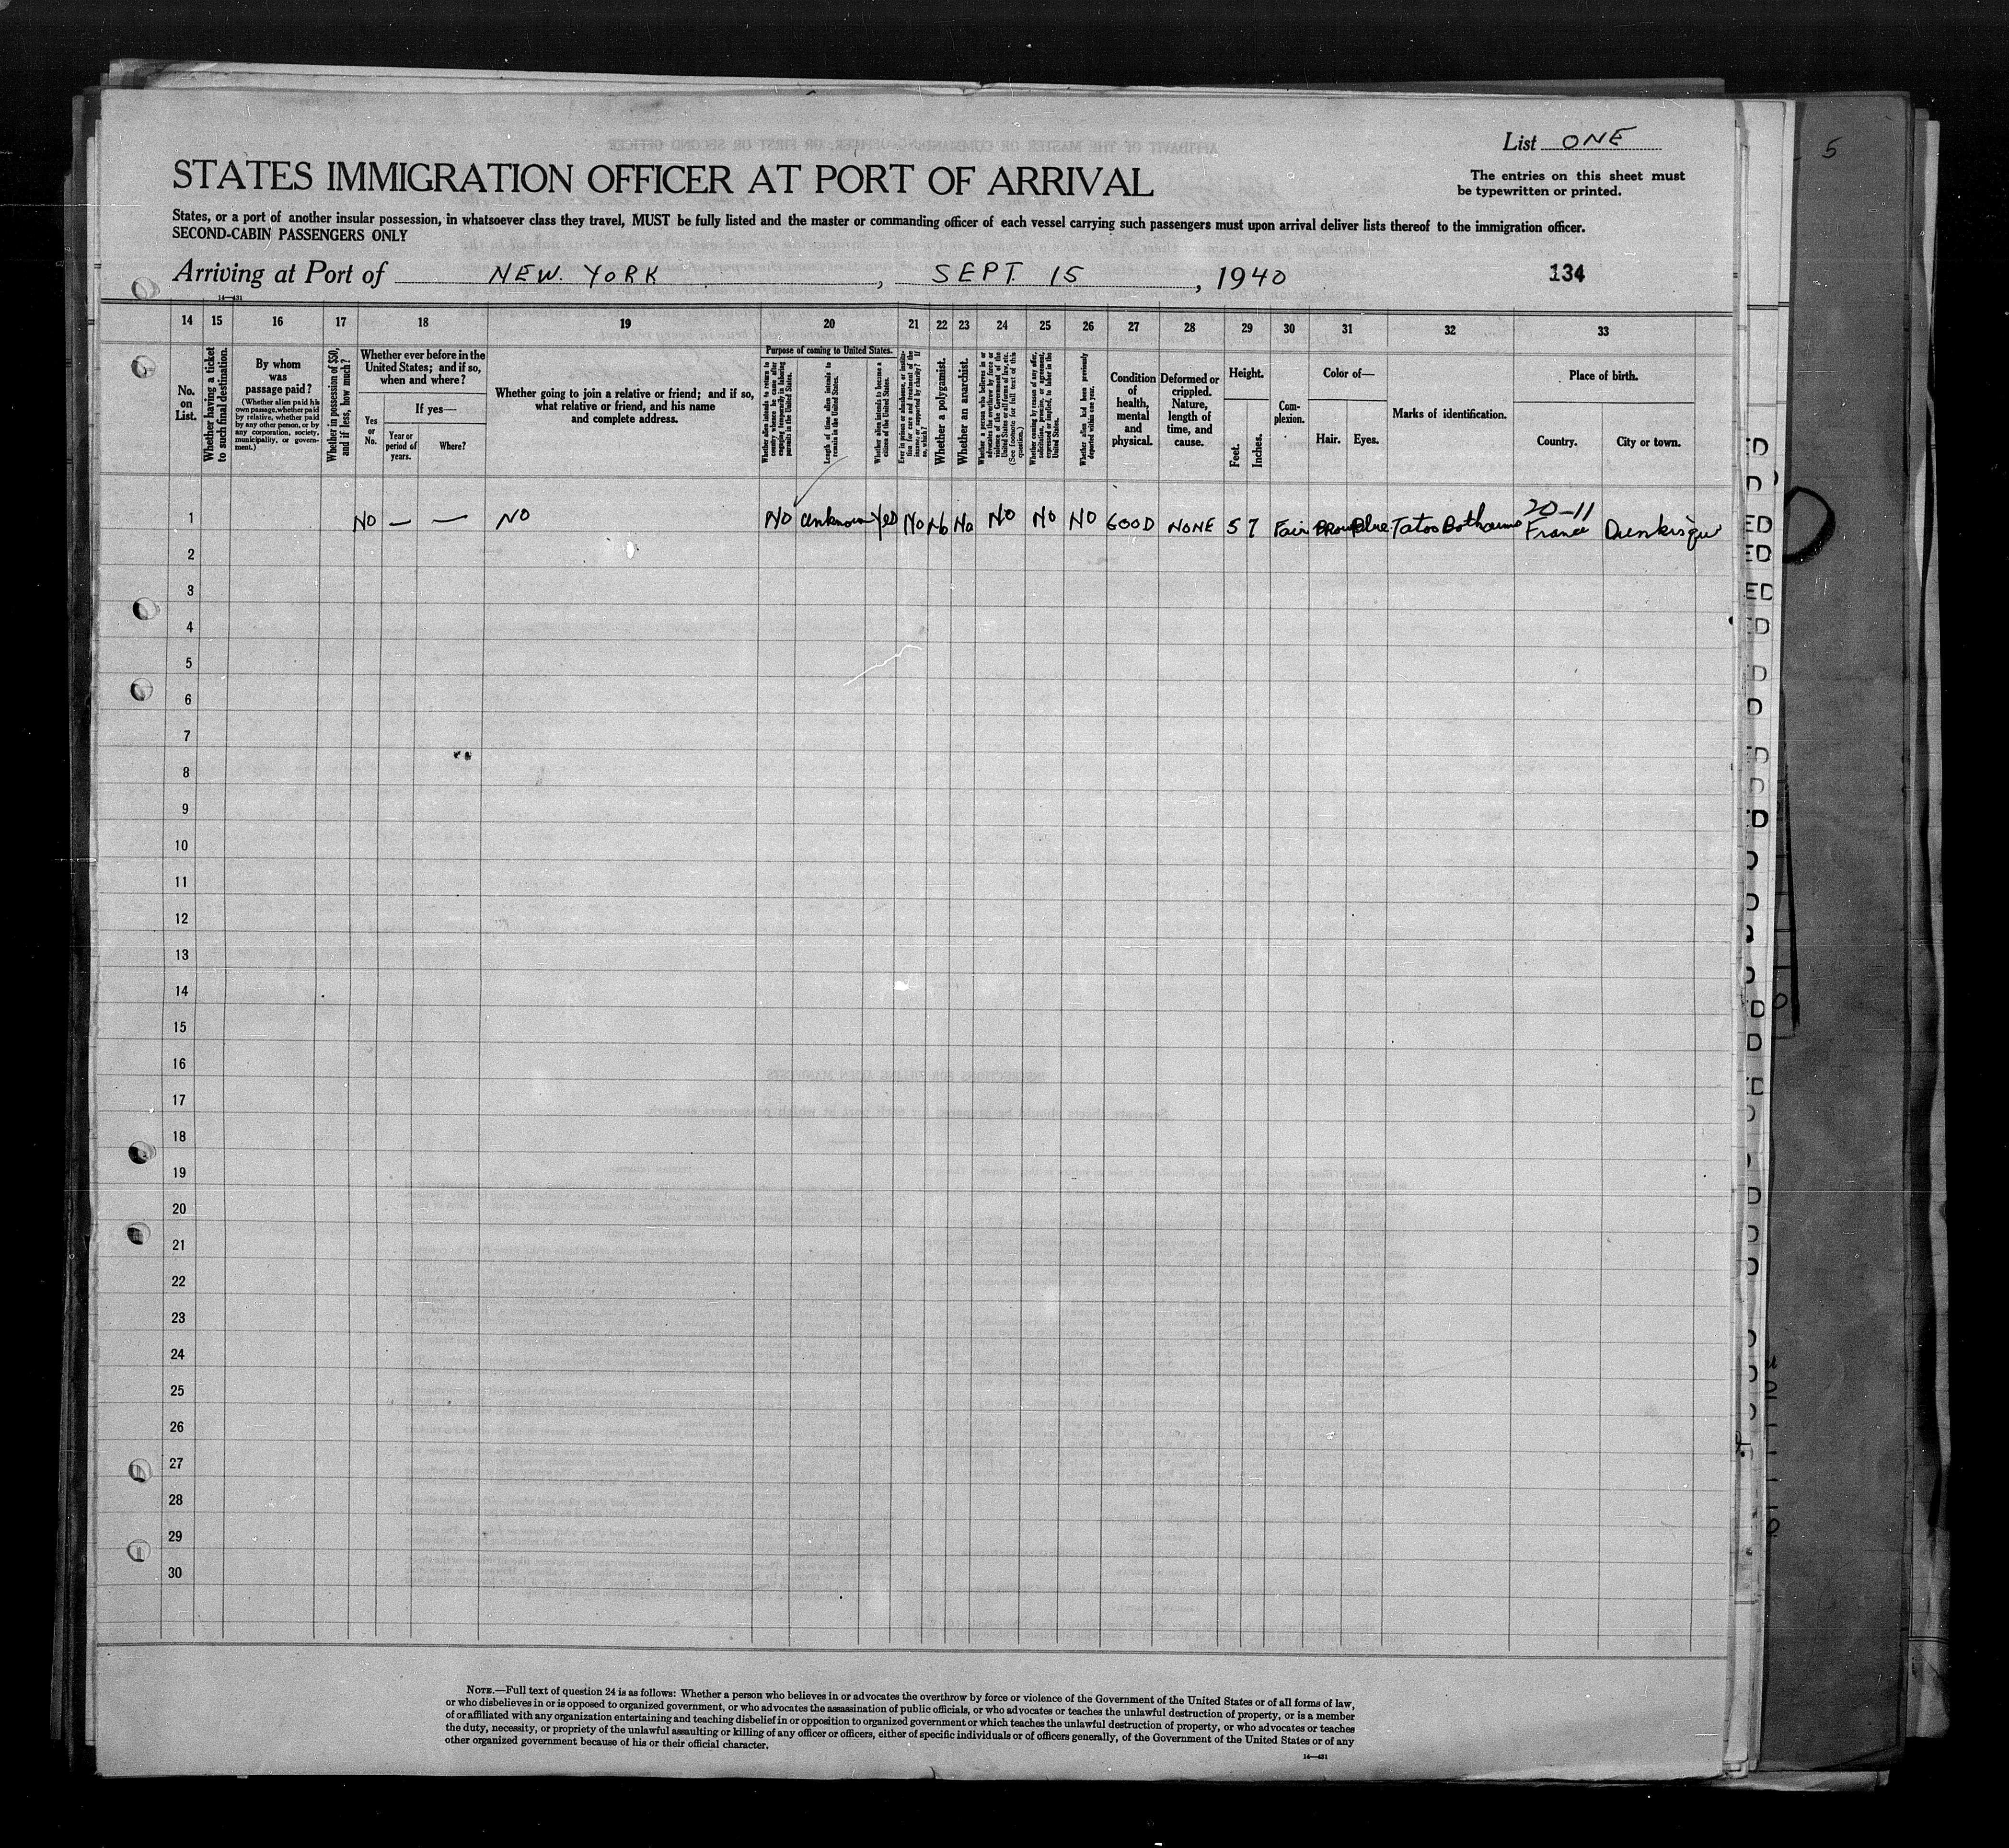 List ONE
5
STATES IMMIGRATION OFFICER AT PORT OF ARRIVAL
The entries on this sheet must
be typewritten or printed.
States, or a port of another insular possession, in whatsoever class they travel, MUST be fully listed and the master or commanding officer of each vessel carrying such passengers must upon arrival deliver lists thereof to the immigration officer.
SECOND-CABIN PASSENGERS ONLY
Arriving at Port of NEW YORK, SEPT. 15, 1940
134
14—431
14 15 16 17 18 19 20 21 22 23 24 25 26 27 28 29 30 31 32 33
No. on List.
Whether having a ticket to such final destination.
By whom was passage paid?
(Whether alien paid his own passage, whether paid by relative, whether paid by any other person, or by any corporation, society, municipality, or government.)
Whether in possession of $50, and if less, how much?
Whether ever before in the United States; and if so, when and where?
Yes or No.
If yes—
Year or period of years.
Where?
Whether going to join a relative or friend; and if so, what relative or friend, and his name and complete address.
Purpose of coming to United States.
Whether alien intends to return to country whence he came after engaging temporarily in laboring pursuits in the United States.
Length of time alien intends to remain in the United States.
Whether alien intends to become a citizen of the United States.
Ever in prison or almshouse, or institution for care and treatment of the insane, or supported by charity? If so, which?
Whether a polygamist.
Whether an anarchist.
Whether a person who believes in or advocates the overthrow by force or violence of the Government of the United States or all forms of law, etc. (See footnote for full text of this question.)
Whether coming by reason of any offer, solicitation, promise, or agreement, expressed or implied, to labor in the United States.
Whether alien had been previously deported within one year.
Condition of health, mental and physical.
Deformed or crippled. Nature, length of time, and cause.
Height.
Feet.
Inches.
Complexion.
Color of—
Hair.
Eyes.
Marks of identification.
Place of birth.
Country.
City or town.
20-11
1 NO — — NO NO unknown Yes No No No NO No NO GOOD NONE 5 7 Fair Brown Blue Tatoo Both arms France Dunkirque
2
3
4
5
6
7
8
9
10
11
12
13
14
15
16
17
18
19
20
21
22
23
24
25
26
27
28
29
30
NOTE.—Full text of question 24 is as follows: Whether a person who believes in or advocates the overthrow by force or violence of the Government of the United States or of all forms of law,
or who disbelieves in or is opposed to organized government, or who advocates the assassination of public officials, or who advocates or teaches the unlawful destruction of property, or is a member
of or affiliated with any organization entertaining and teaching disbelief in or opposition to organized government or which teaches the unlawful destruction of property, or who advocates or teaches
the duty, necessity, or propriety of the unlawful assaulting or killing of any officer or officers, either of specific individuals or of officers generally, of the Government of the United States or of any
other organized government because of his or their official character.
14—431